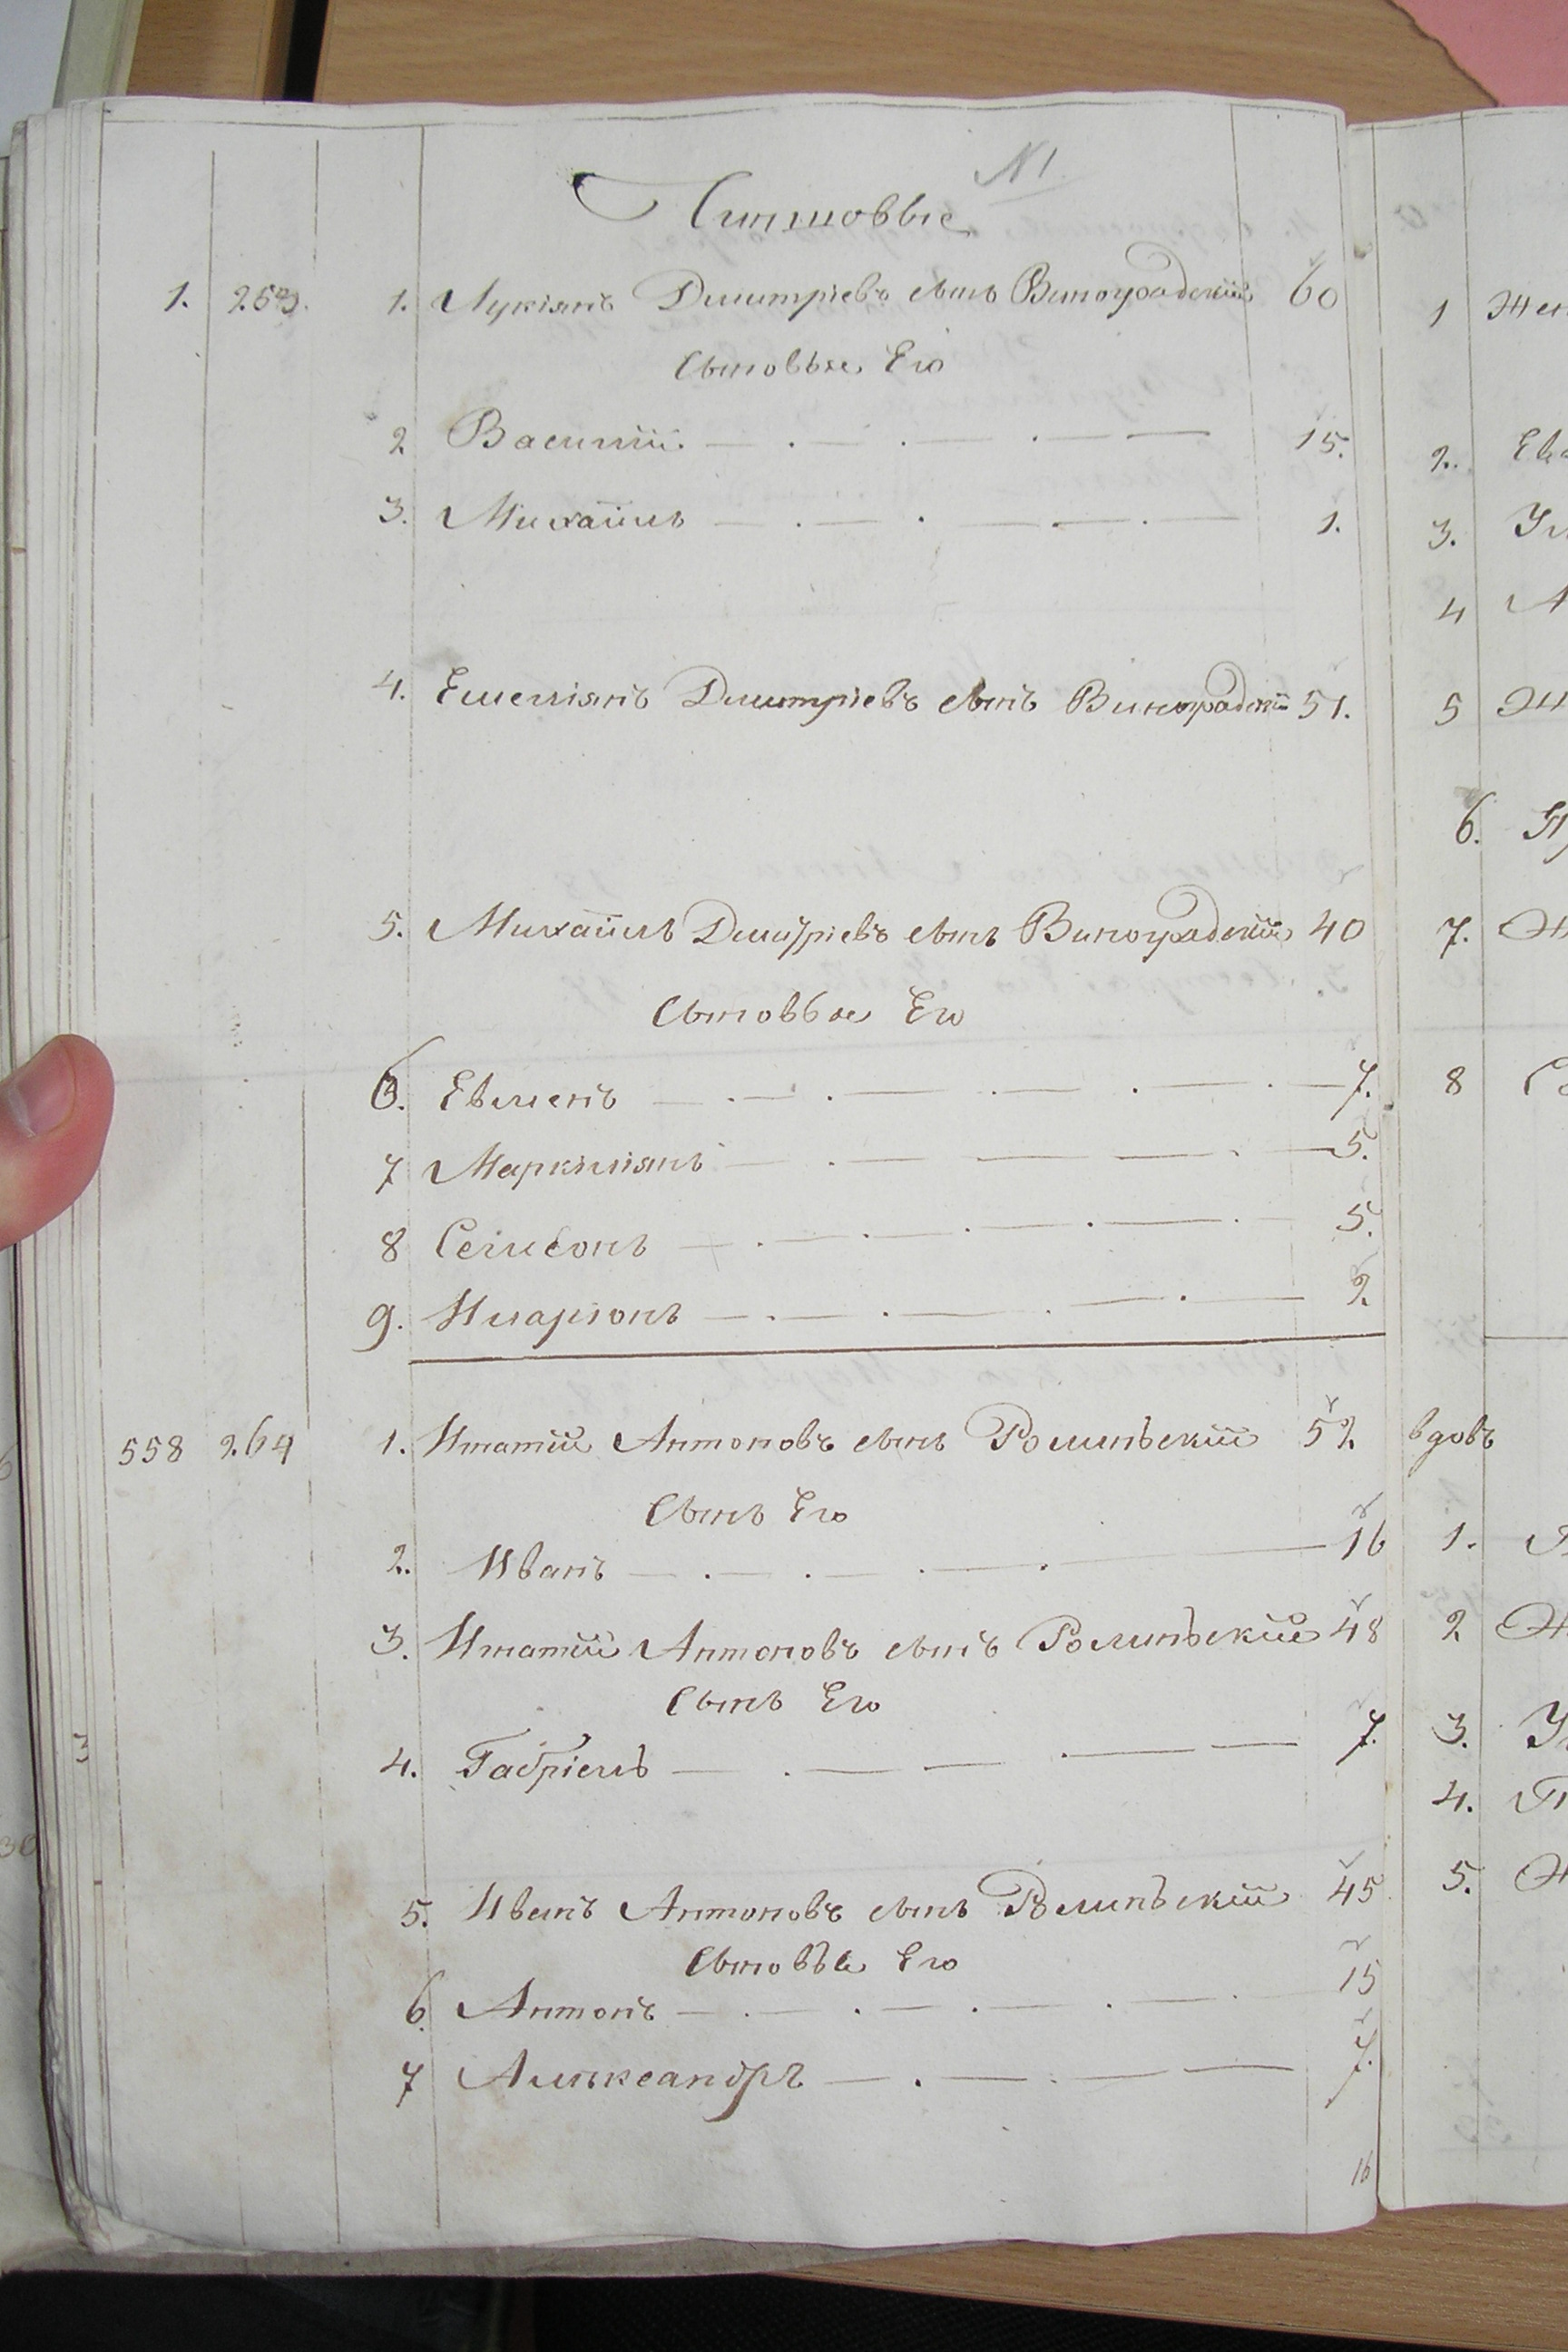 N1
Липповые
1. 253. 1. Лукіянъ Дмитріевъ сынъ Виноградскій 60
Сыновья Его
2 Василій 15.
3. Михаилъ 1.
4. Емеліянъ Дмитріевъ сынъ Виноградскій 51.
5. Михаилъ Дмитріевъ сынъ Виноградскій 40
Сыновья Его
6. Евменъ 7.
7 Маркиліянъ 5.
8 Семионъ 5.
9. Иларіонъ 2.
558 264 1. Игнатій Антоновъ сынъ Роминъскій 52
Сынъ Его
2. Иванъ 16
3. Игнатій Антоновъ сынъ Роминъскій 48
Сынъ Его
4. Габріель 7.
5. Иванъ Антоновъ сынъ Роминъскій 45
Сыновья Его
6. Антонъ 15
7 Алѣксандръ 7.
16
1 Жен
2. Ева
3.
4
5
6.
7.
8
вдовъ
1.
2
3.
4.
5.